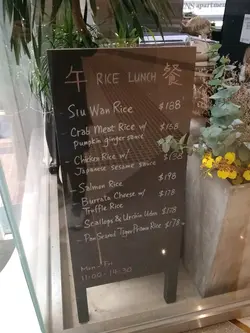 午 RICE LUNCH 餐
- SIU WAN RICE $188
- CRAB MEAT RICE W/ $168
PUMPKIN GINGER SAUCE
- CHICKEN RICE W/ $138
JAPANESE SESAME SAUCE
- SALMON RICE $198
- BURRATA CHEESE W/ $178
TRUFFLE RICE
- SCALLOPS & URCHIN UDON $178
- PAN SEARED TIGER PRAWN RICE $178
MON - FRI
11:00 - 14:30